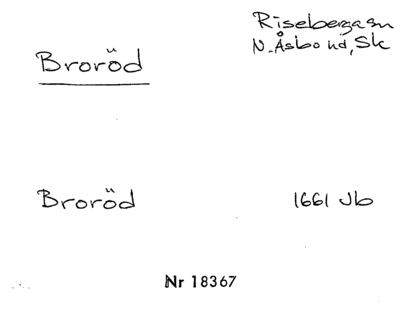 Broröd
Risebergasn
N. Åsbo hd, Sk
Broröd
1661 Jb
Nr 18367